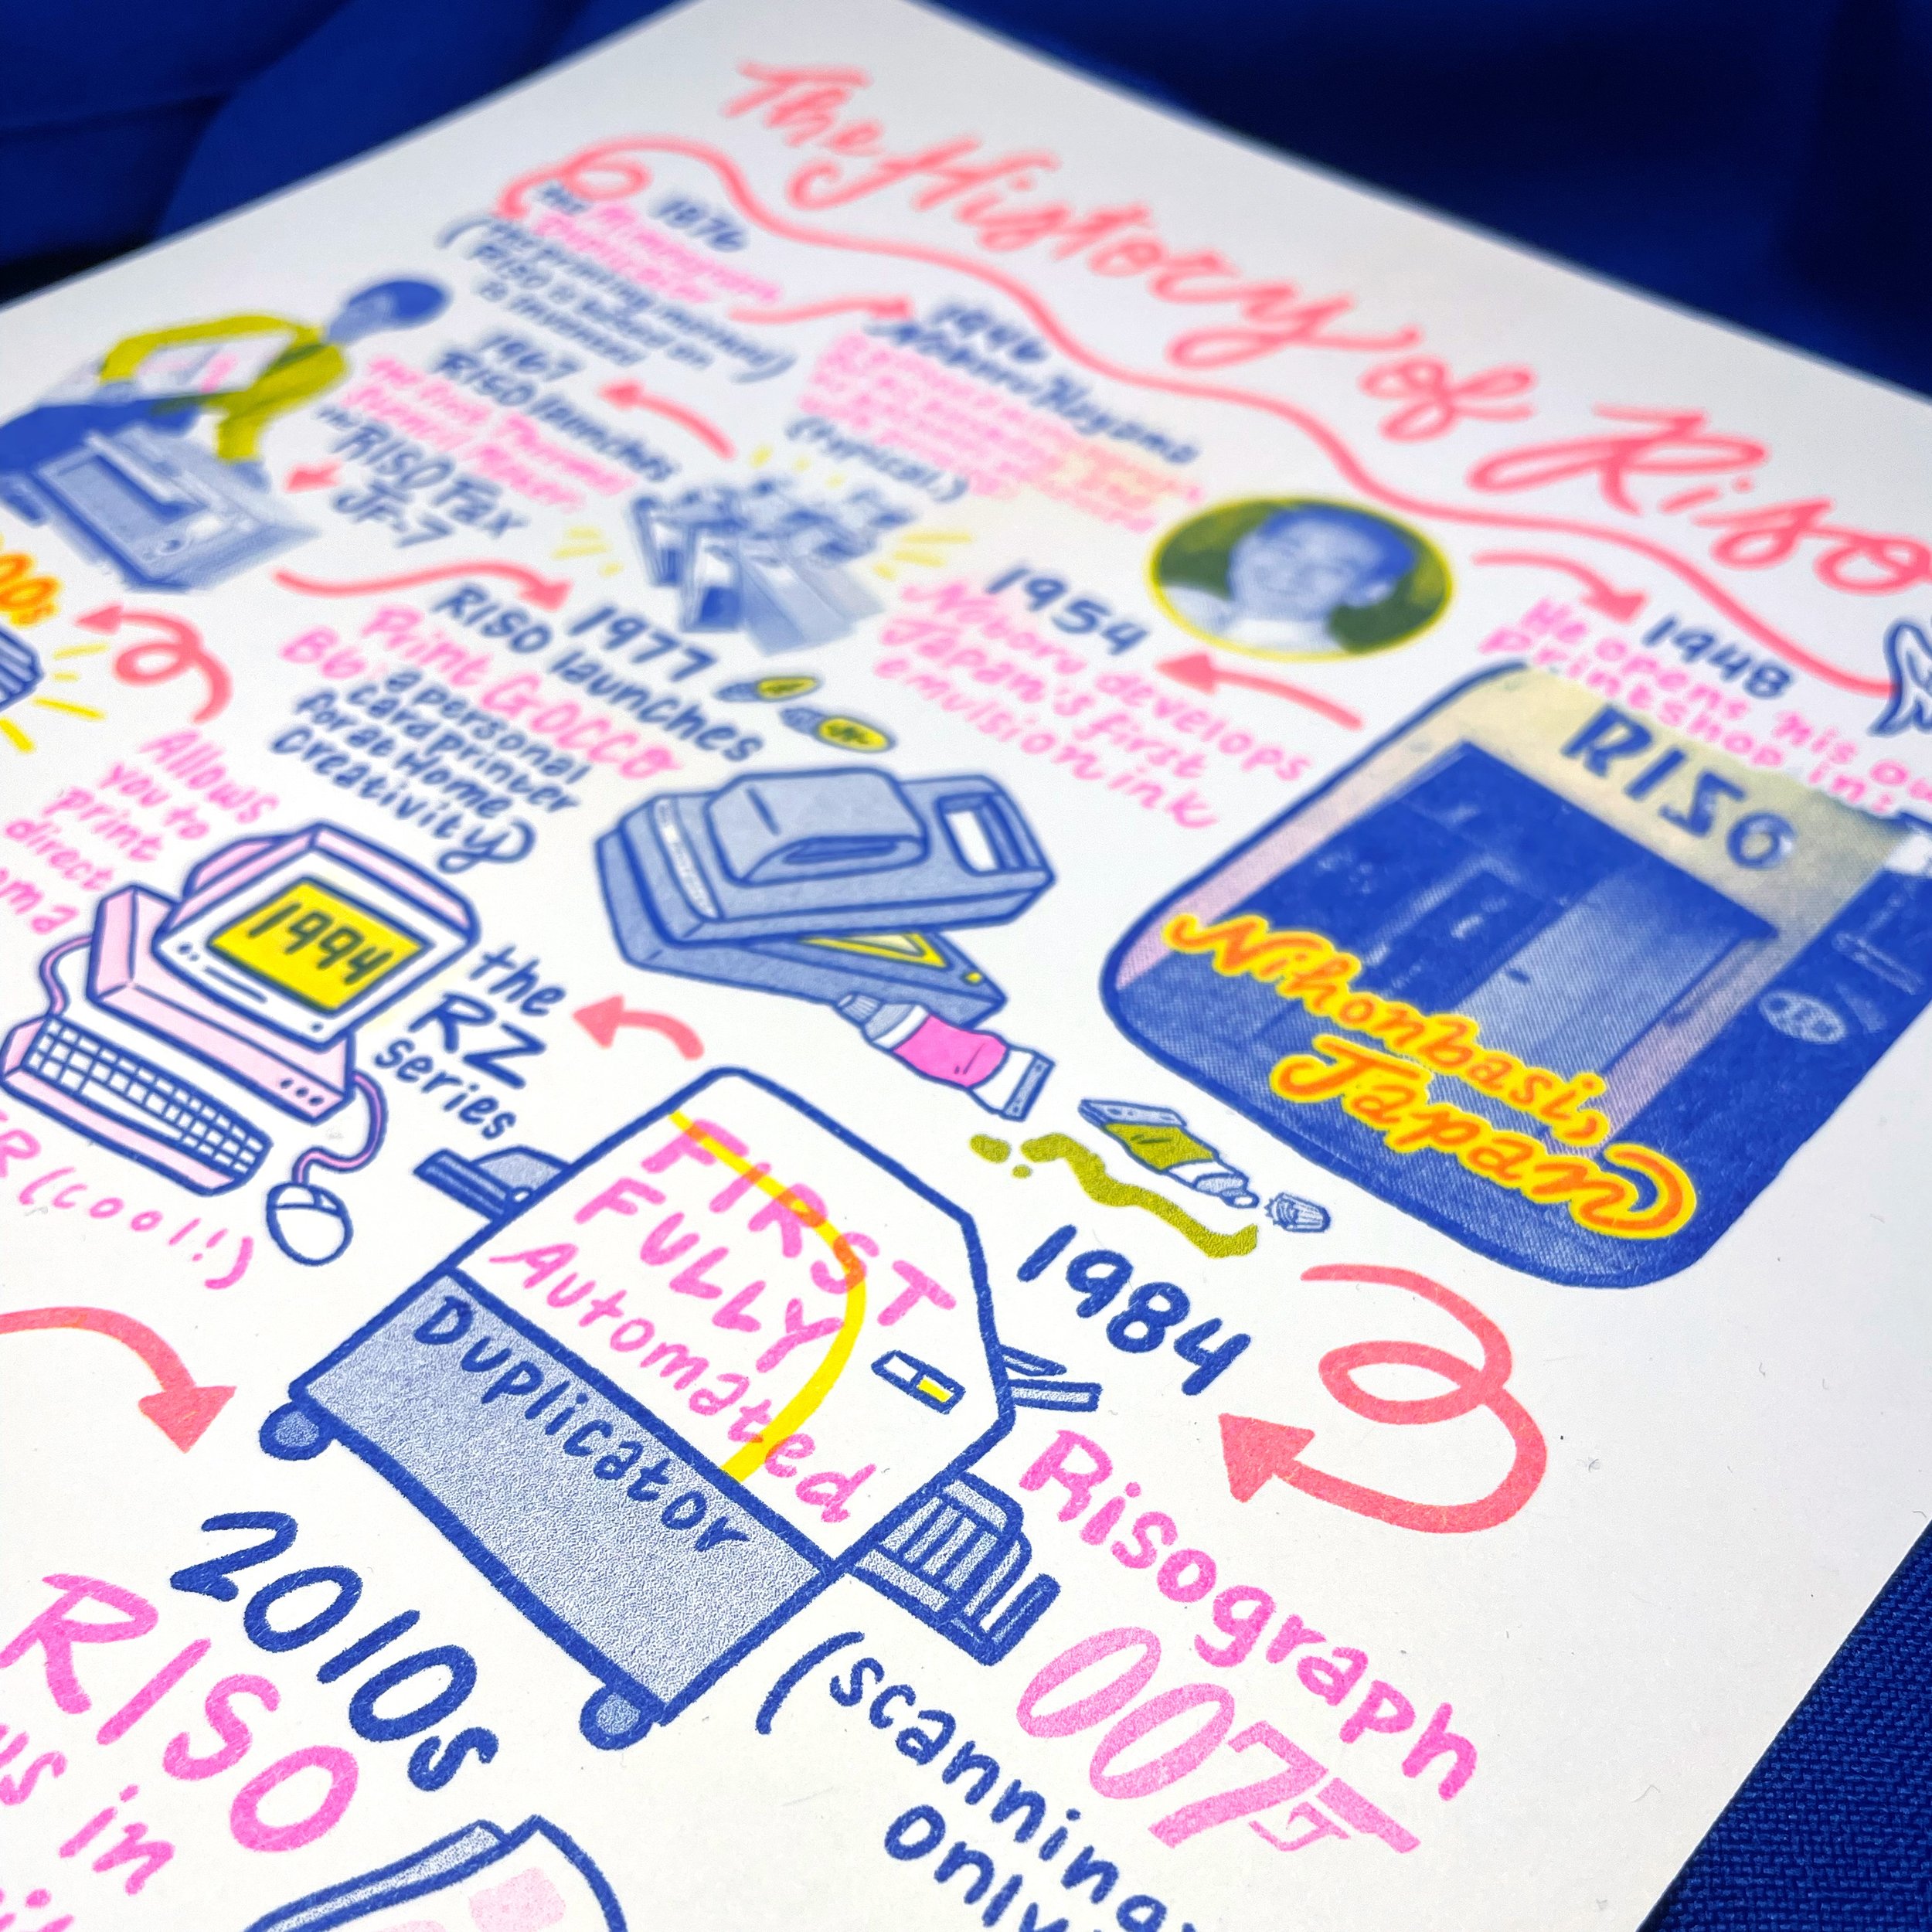 The History of Riso
1876
The Mimeograph
Duplicator
(the printing method
RISO is based on
is invented)
1946
Noboru Hayama
(typical)
1948
He opens his ow
Printshop in:
RISO
Nihonbasi,
Japan
1954
Noboru develops
Japan's first
emulsion ink
1967
RISO launches
the first Thermal
Stencil Maker
the RISO Fax
JF-7
1977
RISO launches
Print GOCCO
B6
a personal
card printer
for at Home
Creativity
1984
Risograph
007
(scanning
only
FIRST
FULLY
Automated
Duplicator
the
RZ
series
1994
Allows
you to
print
direct
oma
ER (cool!)
00s
2010s
RISO
us in